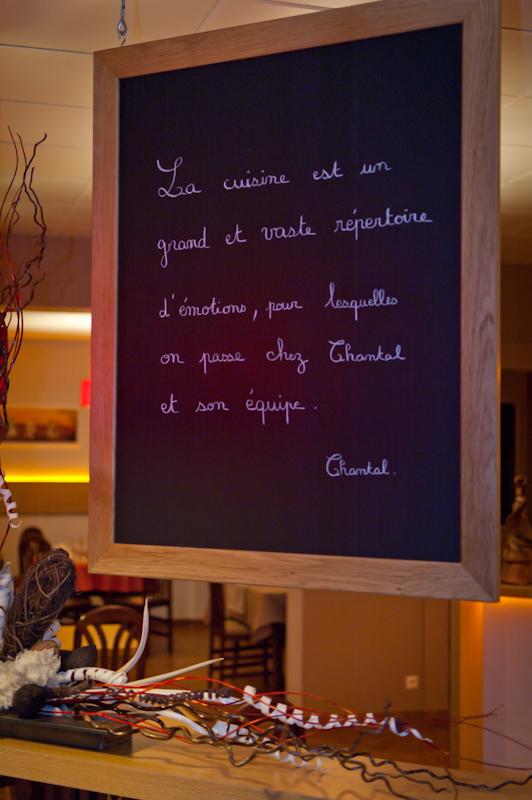 La cuisine est un
grand et vaste répertoire
d'émotions, pour lesquelles
on passe chez Chantal
et son équipe.
Chantal.